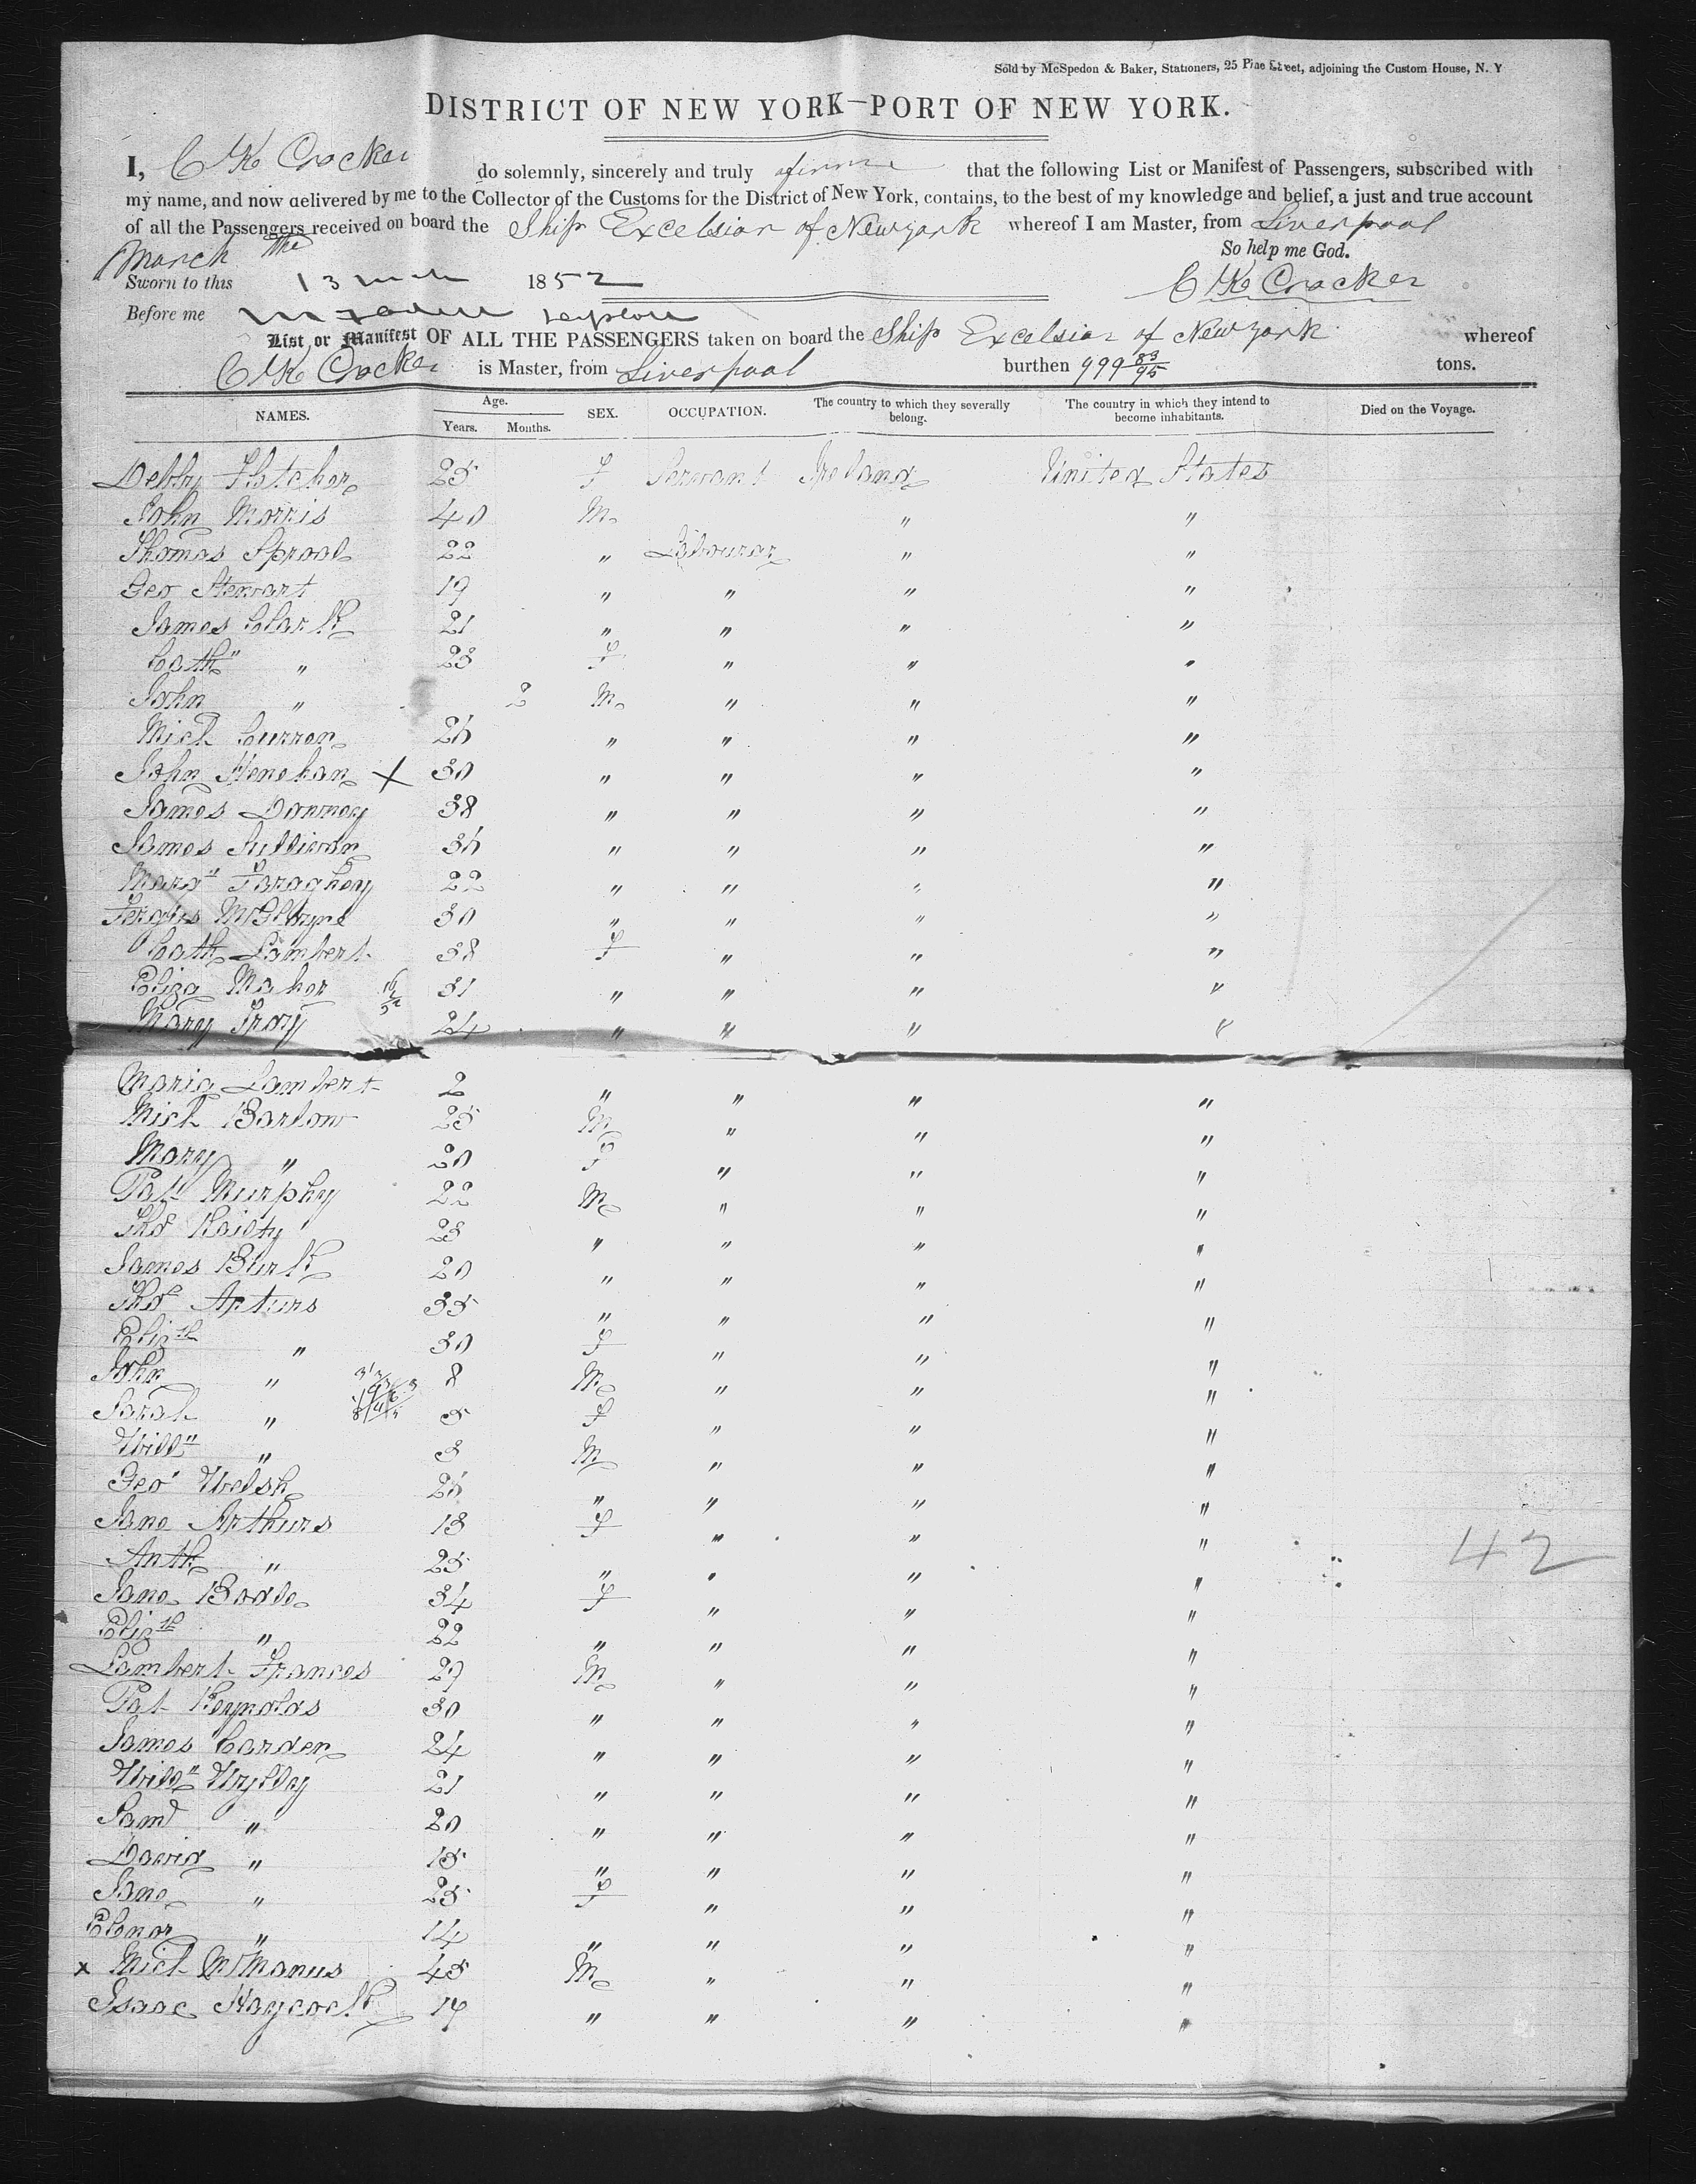 Sold by McSpedon & Baker, Stationers, 25 Pine Street, adjoining the Custom House, N. Y
DISTRICT OF NEW YORK—PORT OF NEW YORK.
I, C K Crocker do solemnly, sincerely and truly afirm that the following List or Manifest of Passengers, subscribed with
my name, and now delivered by me to the Collector of the Customs for the District of New York, contains, to the best of my knowledge and belief, a just and true account
of all the Passengers received on board the Ship Excelsior of Newyork whereof I am Master, from Liverpool
So help me God.
March the
Sworn to this 13 1852 C K Crocker
Before me
List or Manifest OF ALL THE PASSENGERS taken on board the Ship Excelsior of Newyork whereof
C K Crocker is Master, from Liverpool burthen 999 83/95 tons.
NAMES. Age. Years. Months. SEX. OCCUPATION. The country to which they severally belong. The country in which they intend to become inhabitants. Died on the Voyage.
Debby Fletcher 25 f Servant Ireland United States
John Morris 40 M " "
Thomas Sprool 22 " Labourer " "
Geo Stewart 19 " " " "
James Clark 21 " " " "
Cath" " 23 f " " "
John " 2 M " " "
Mich Curran 26 " " " "
John Henehan X 30 " " " "
James Downey 38 " " " "
James Sullivan 36 " " " "
Marg" Faraghey 22 " " " "
Fergus 30 " " " "
Cath Lambert 38 f " " "
Eliza Maher 31 " " " "
Mary Troy 24 " " " "
Maria Lambert 2 " " " "
Mich Barlow 25 M " " "
Mary " 20 f " " "
Pat Murphy 22 M " " "
Tho' Reilly 23 " " " "
James Burk 20 " " " "
Tho' Arturs 35 " " " "
Eliz th " 30 f " " "
John " 8 M " " "
Sarah " 5 f " " "
Will" " 3 M " " "
Geo' Welsh 26 " " " "
Jane Arthurs 13 f " " "
Anth " 25 " " " "
42
Jane Bodle 34 f " " "
Eliz th " 22 " " " "
Lambert Frances 29 M " " "
Pat Reynolds 30 " " " "
James Carden 24 " " " "
Will" Wylley 21 " " " "
Saml " 20 " " " "
David " 15 " " " "
Jane " 25 f " " "
Elenor " 14 " " " "
x Mich McManus 45 M " " "
Isaac Haycock 14 " " " "